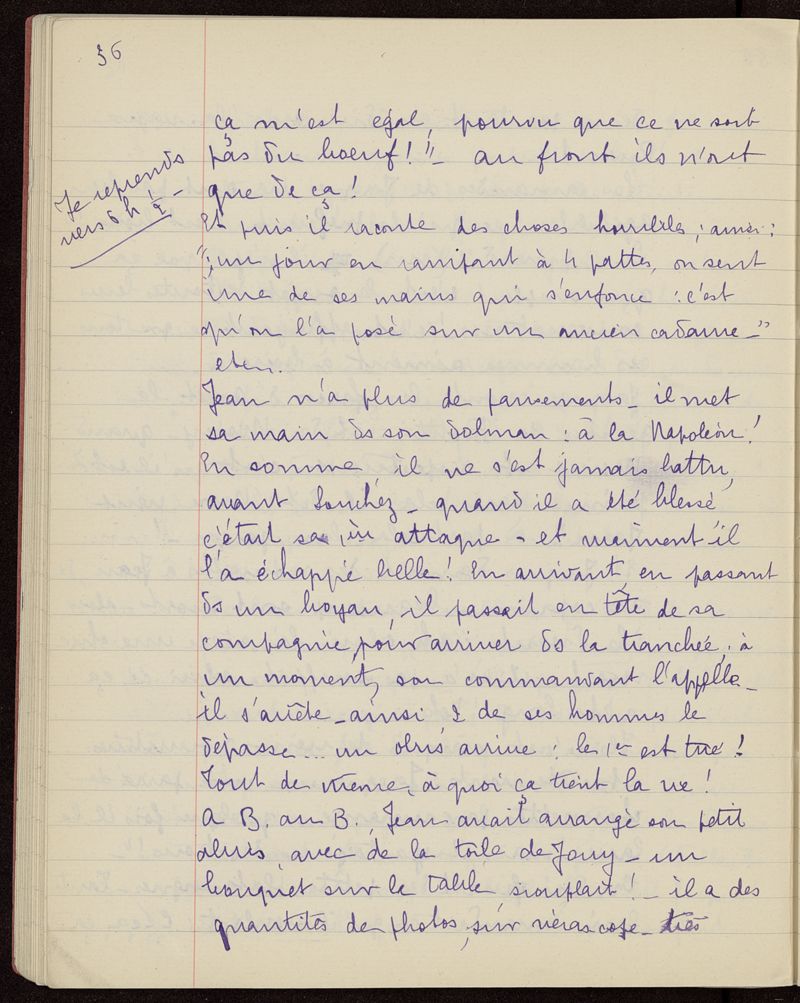 36
ça m'est égal, pourvu que ce ne soit
pas du boeuf!" - au front ils n'ont
que de ça!
Je reprends
vers 5 h 1/2 -
Et puis il raconte des choses horribles, ainsi:
"un jour en rampant à 4 pattes, on sent
une de ses mains qui s'enfonce : c'est
qu'on l'a posé sur un ancien cadavre -"
etc..
Jean n'a plus de pansements - il met
sa main ds son dolman : à la Napoléon!
En somme, il ne s'est jamais battu,
avant Souchez - quand il a été blessé
c'était sa 1ère attaque - et vraiment il
l'a échappé belle! En arrivant, en passant
ds un boyau, il passait en tête de sa
compagnie, pour arriver ds la tranchée, à
un moment, son commandant l'appelle -
il s'arrête - ainsi 2 de ses hommes le
dépasse... un obus arrive : le 1er est tué!
Tout de même, à quoi ça tient la vie!
A B. au B., Jean avait arrangé son petit
abris, avec de la toile de Jouy - un
bouquet sur la table, siouplait! - il a des
quantités de photos, sur vérascope - très